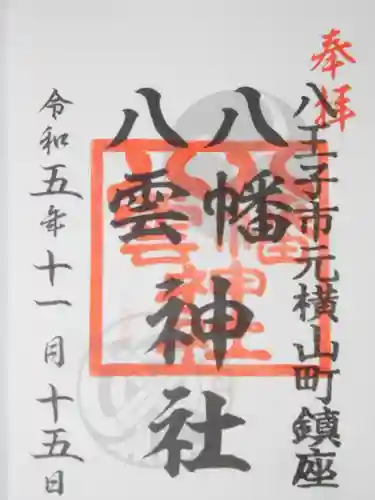 奉拝
八王子市元横山町鎮座
八幡
八雲
神社
令和五年十一月十五日